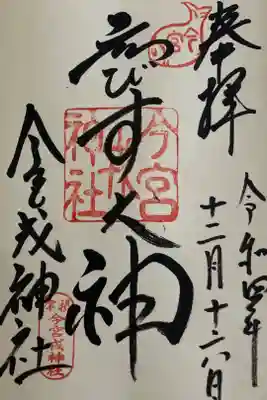 奉拝
令和四年
十二月十六日
ゑびす大神
今宮
神社
今宮戎神社
今宮戎神社